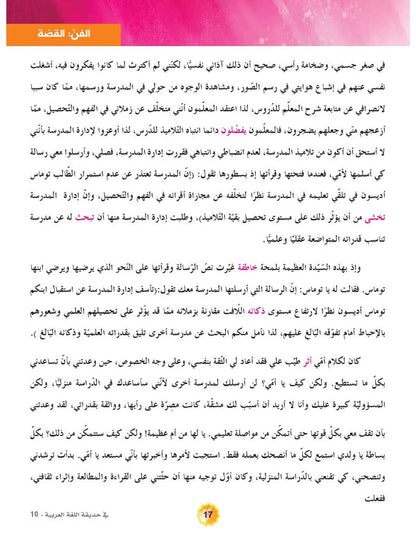 الفنّ: القصّة
في صغر جسمي، وضخامة رأسي، صحيح أن ذلك آذاني نفسيًّا، لكنّني لم أكترث لما كانوا يفكرون فيه، أشغلت
نفسي عنهم في إشباع هوايتي في رسم الصّور، ومشاهدة الوجوه من حولي في المدرسة ورسمها، ممّا كان سببا
لانصرافي عن متابعة شرح المعلّم للدّروس، لذا اعتقد المعلّمون أنّني متخلّف عن زملائي في الفهم والتّحصيل، ممّا
أزعجهم منّي وجعلهم يضجرون، فالمعلّمون يفضّلون دائما انتباه التّلاميذ للدّرس، لذا أوعزوا لإدارة المدرسة بأنّني
لا أستحق أن أكون من تلاميذ المدرسة، لعدم انضباطي وانتباهي فقررت إدارة المدرسة، فصلي، وأرسلوا معي رسالة
كي أسلمها لأمّي، فعندما فتحتها وقرأتها إذ بسطورها تقول: (إنّ المدرسة تعتذر عن عدم استمرار الطّالب توماس
أديسون في تلقّي تعليمه في المدرسة نظرًا لتخلّفه عن مجاراة أقرانه في الفهم والتّحصيل، وإنّ إدارة المدرسة
تخشى من أن يؤثّر ذلك على مستوى تحصيل بقيّة التّلاميذ)، وطلبت إدارة المدرسة منها أن تبحث له عن مدرسة
تناسب قدراته المتواضعة عقليّا وعلميًّا.
وإذ بهذه السّيّدة العظيمة بلمحة خاطفة غيّرت نصّ الرّسالة وقرأتها على النّحو الذي يرضيها ويرضي ابنها
توماس. فقالت له يا توماس: إنّ الرسالة التي أرسلتها المدرسة معك تقول:(تأسف إدارة المدرسة عن استقبال ابنكم
توماس أديسون نظرًا لارتفاع مستوى ذكائه اللّافت مقارنة بزملائه ممّا قد يؤثّر على تحصيلهم العلمي وشعورهم
بالإحباط أمام تفوّقه البّالغ عليهم، لذا نأمل منكم البحث عن مدرسة أخرى تليق بقدراته العلميّة وذكائه البّالغ ).
كان لكلام أمّي أثر طيّب علي فقد أعاد لي الثّقة بنفسي، وعلى وجه الخصوص، حين وعدتني بأنّ تساعدني
بكلّ ما تستطيع. ولكن كيف يا أمّي؟ لن أرسلك لمدرسة أخرى لأنّني سأساعدك في الدّراسة منزليًّا، ولكن
المسؤوليّة كبيرة عليك وأنا لا أريد أن أسبّب لك مشقّة، كانت مصرّة على رأيها، وواثقة بقدراتي، لقد وعدتني
بأن تقف معي بكلّ قوتها حتى أتمكّن من مواصلة تعليمي. يا لها من أم عظيمة! ولكن كيف ستتمكّن من ذلك؟ بكلّ
بساطة يا ولدي استمع لكلّ ما أنصحك بعمله فقط. استجبت لأمرها وأخبرتها بأنّي مستعد يا أمّي. بدأت ترشدني
وتنصحني، كي تقنعني بالدّراسة المنزلية، وكان أوّل توجيه منها أن حثّتني على القراءة والمطالعة وإثراء ثقافتي،
ففعلت
17
في حديقة اللغة العربية - 10